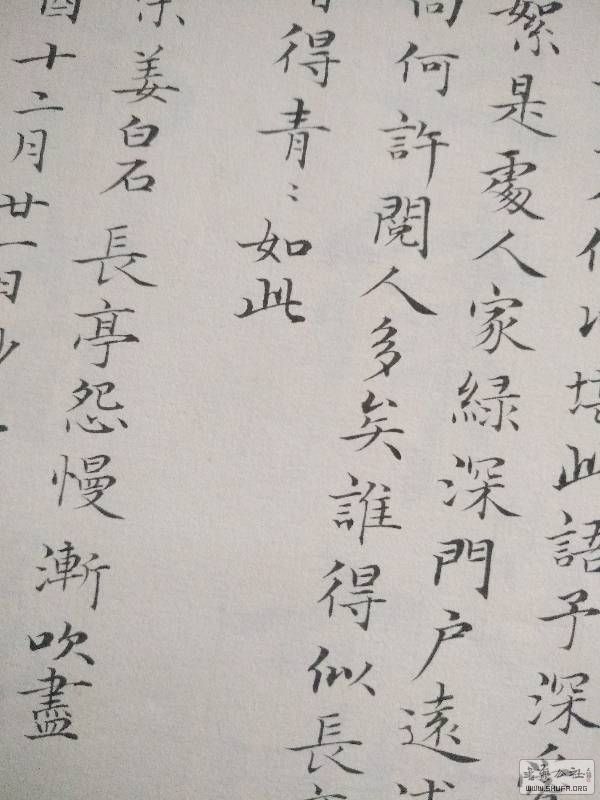 何以堪此語予深愛
絮是處人家綠深門户遠浦
向何許閱人多矣誰得似長亭
得青〻如此
姜白石長亭怨慢漸吹盡
酉十二月廿一日
書法公社
WWW.SHUFA.ORG